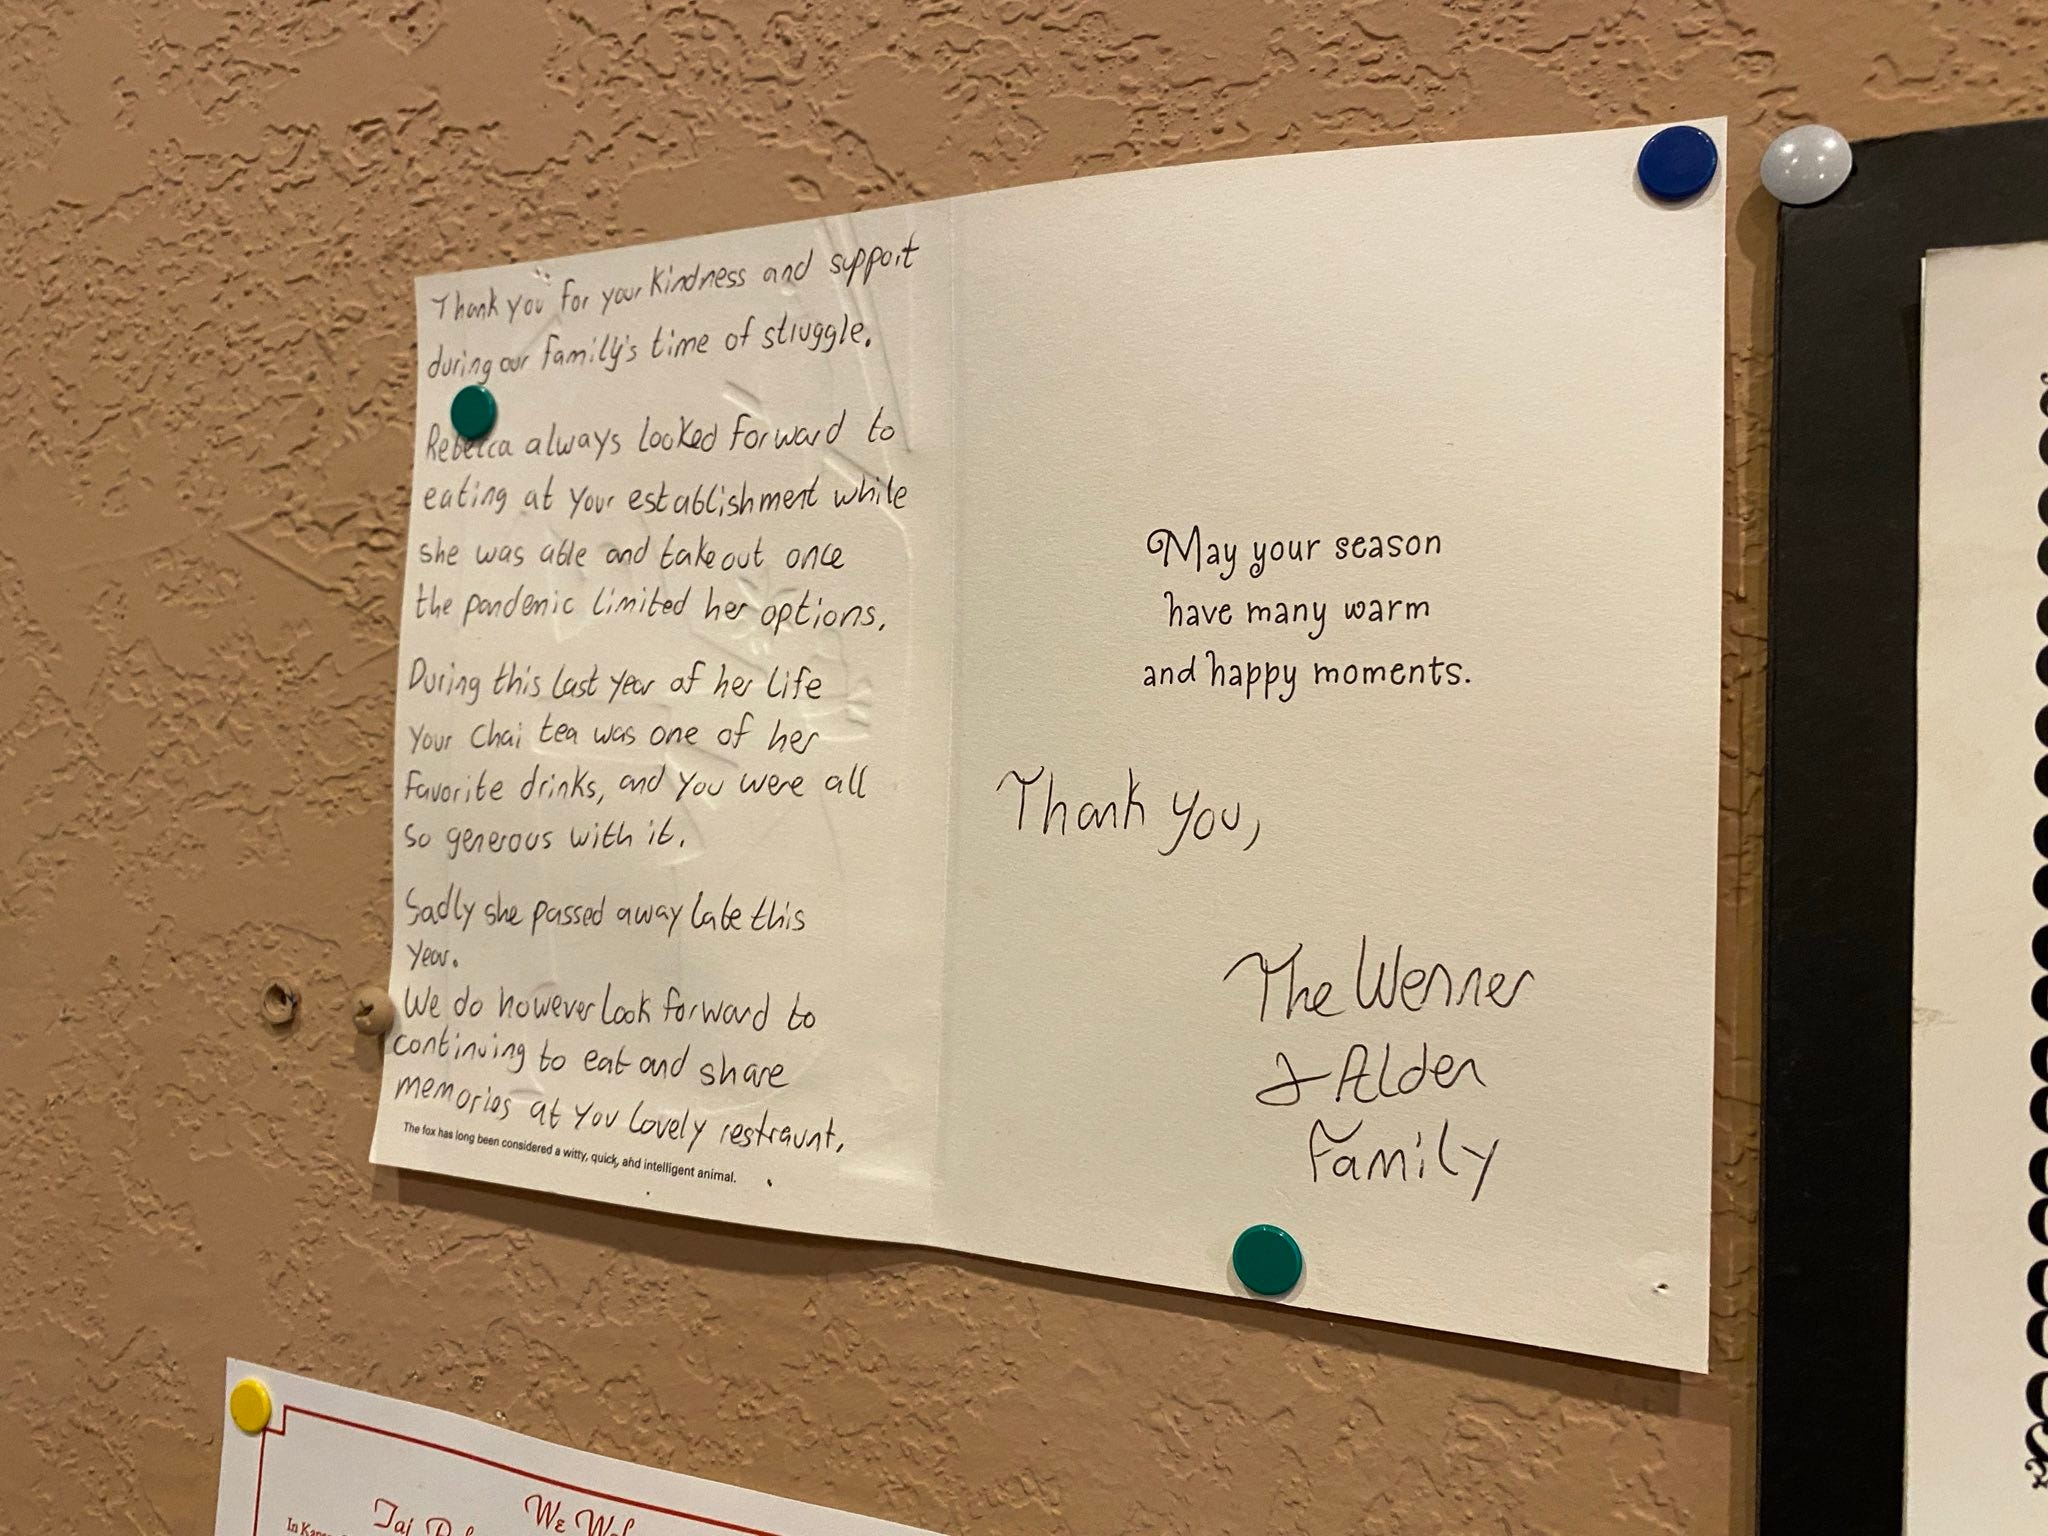 Thank you for your kindness and support
during our family's time of struggle.
Rebecca always looked forward to
eating at your establishment while
she was able and takeout once
the pandemic limited her options.
During this last year of her life
your chai tea was one of her
favorite drinks, and you were all
so generous with it.
Sadly she passed away late this
year.
We do however look forward to
continuing to eat and share
memories at you lovely restraunt.
The fox has long been considered a witty, quick, and intelligent animal.
May your season
have many warm
and happy moments.
Thank you,
The Wenner
& Alden
Family
We
Taj
In